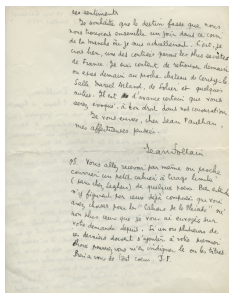 ces sentiments
Je souhaite que le destin fasse que nous
nous trouvions ensemble un jour dans ce coin
de la Manche où je suis actuellement. C'est, je
crois bien, un des cantons parmi les plus secrets
de France. Je suis content de retrouver demain
ou après demain au proche château de Cerisy-la-
Salle Marcel Arland, de Solier et quelques
autres. Il est d'avance certain que vous
serez évoqué, à bon droit, dans nos conversations
Je vous envoie, cher Jean Paulhan,
mes affectueuses pensées.
Jean Follain
PS. Vous allez recevoir par même ou proche
courrier un petit cahier à tirage limité
de quelques
n'y figurant pas ceux déjà composés que vous
avez choisis pour les "Cahiers de la Pléiade" ni
non plus ceux que je vous ai envoyés sur
votre demande depuis. Si un ou plusieurs de
ces derniers devait s'ajouter à votre premier
choix pourriez vous m'en indiquer le ou les titres
Bien à vous de tout coeur. J.F.